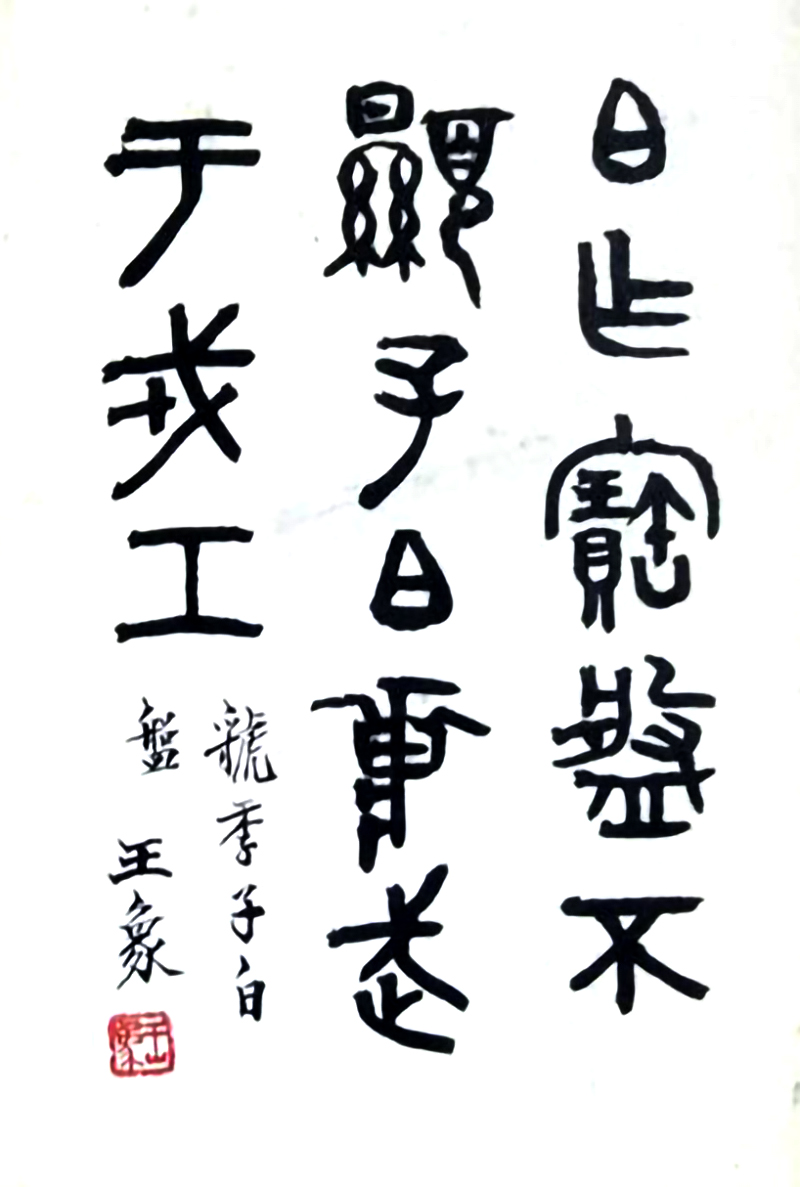 白乍寶盤不
顯子白壯武
于戎工
虢季子白
盤 王象